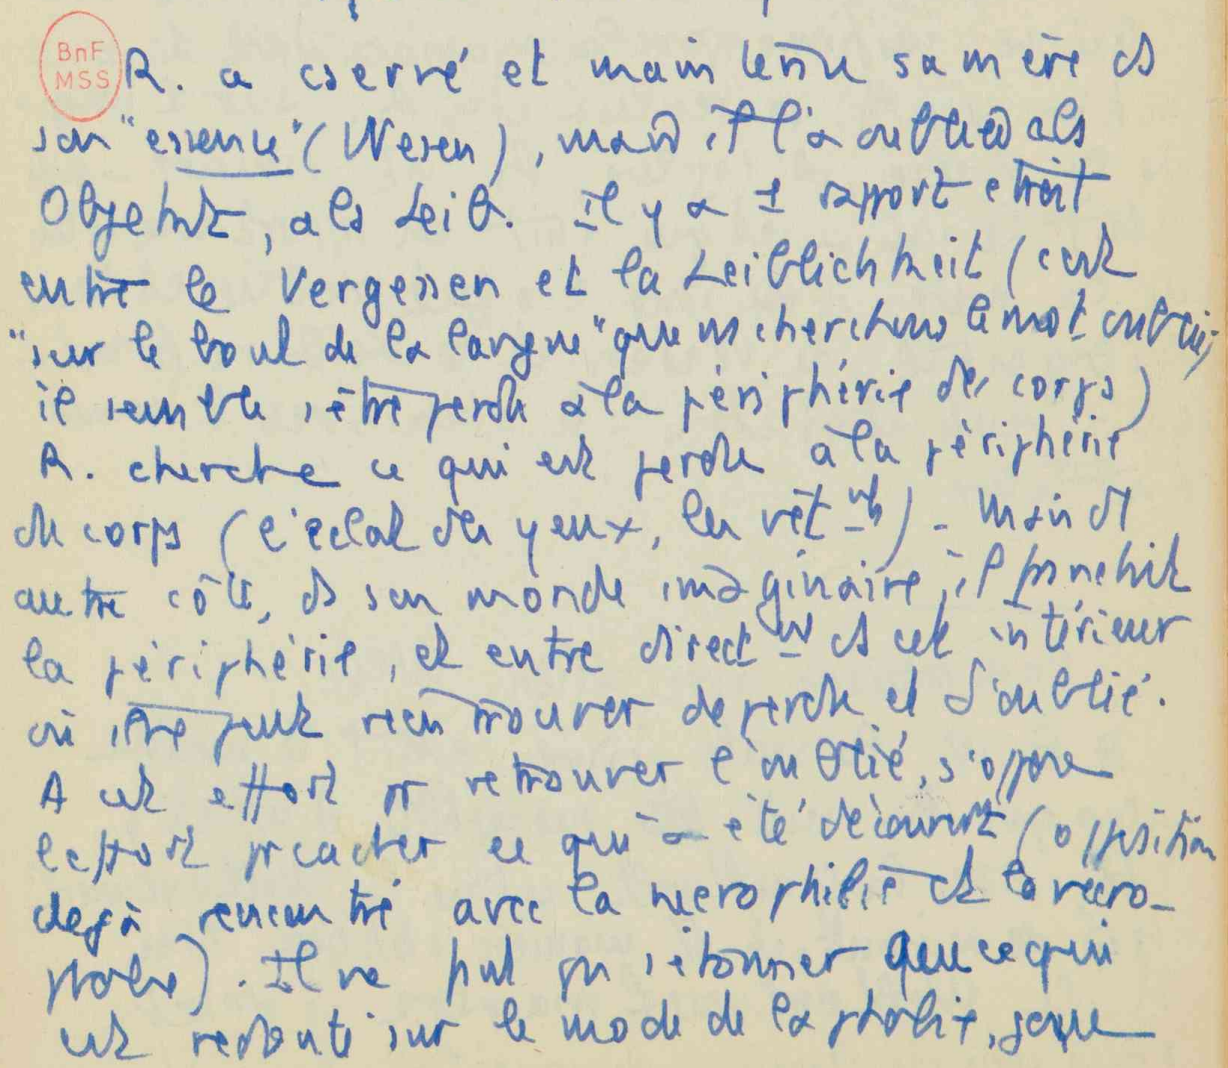 BnF
MSS
R. a cservé et maintenu sa mère ds
son "essence" (Wesen), mais il l'a oubliée als
Objekt, als Leib. Il y a 1 rapport etroit
entre le Vergessen et la Leiblichkeit (c'est
"sur le bout de la langue" que ns cherchons le mot oublié;
il semble s'être perdu à la périphérie du corps)
R. cherche ce qui est perdu à la périphérie
du corps (l'éclat des yeux, les vêtmts). Mais d'1
autre côté, ds son monde imaginaire, il franchit
la périphérie, et entre directmt ds cet intérieur
où peut rien trouver de perdu et d'oublié.
A cet effort pr retrouver l'oublié, s'oppose
l'effort pr cacher ce qui a été découvert (opposition
dejà rencontré avec la necrophilie et la nécro-
phobie). Il ne faut pas s'étonner que ce qui
est redouté sur le mode de la phobie,